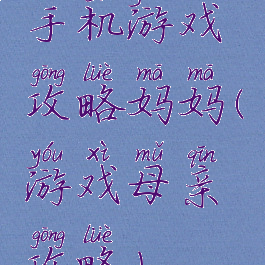 手机游戏
gōng lüè mā mā
攻略妈妈(
yóu xì mǔ qīn
游戏母亲
gōng lüè
攻略)